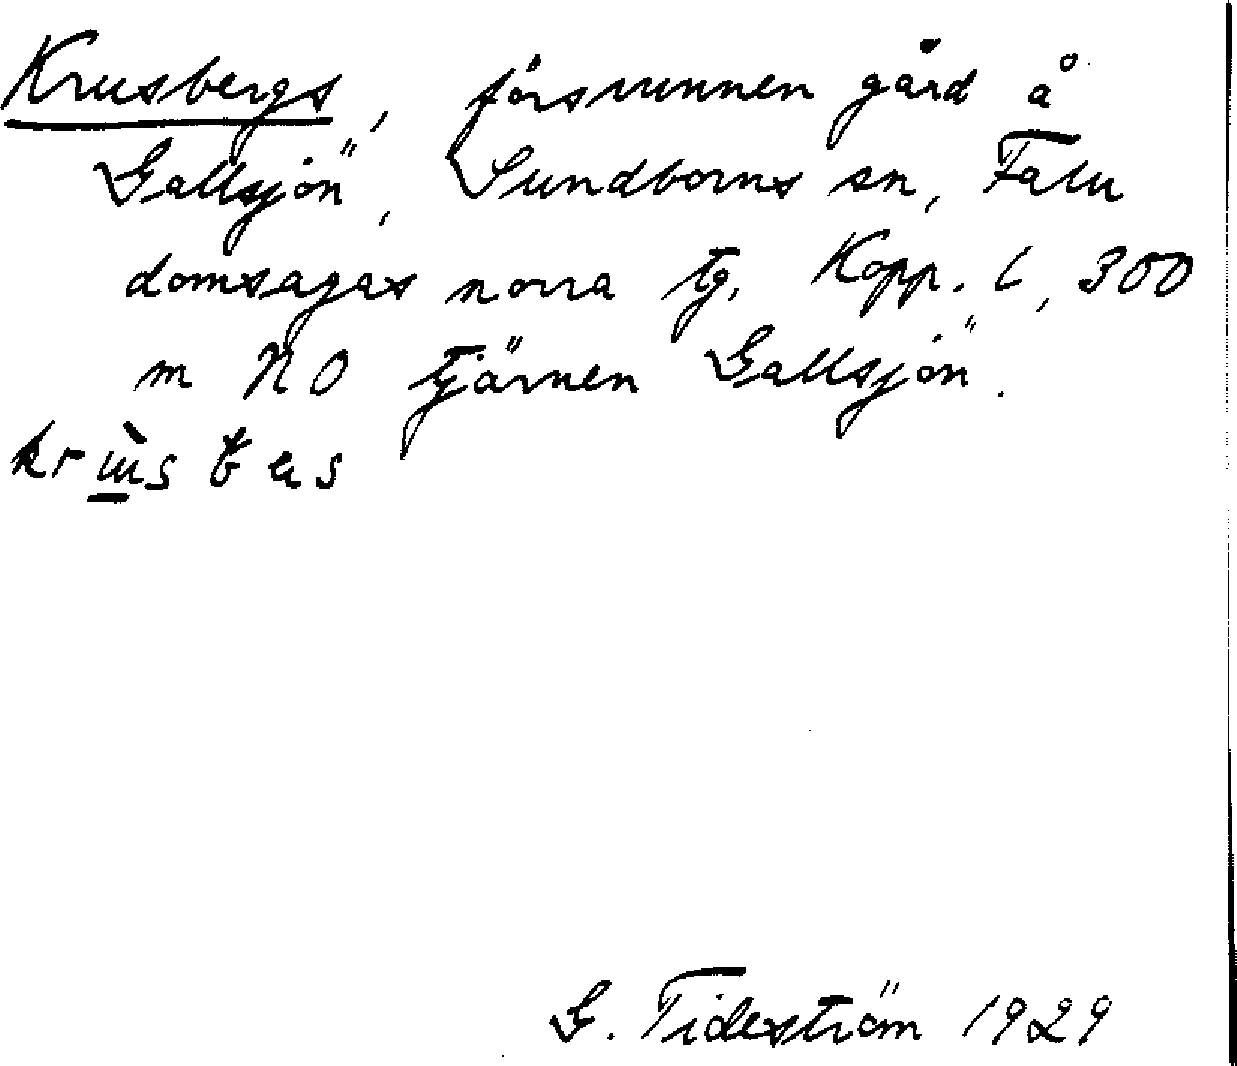 Krusbergs, försvunnen gård å
Gallsjön, Sundborns sn, Falu
domsagas norra tg. Kopp. l, 300
m NO tjärnen Gallsjön.
G. Tideström 1929